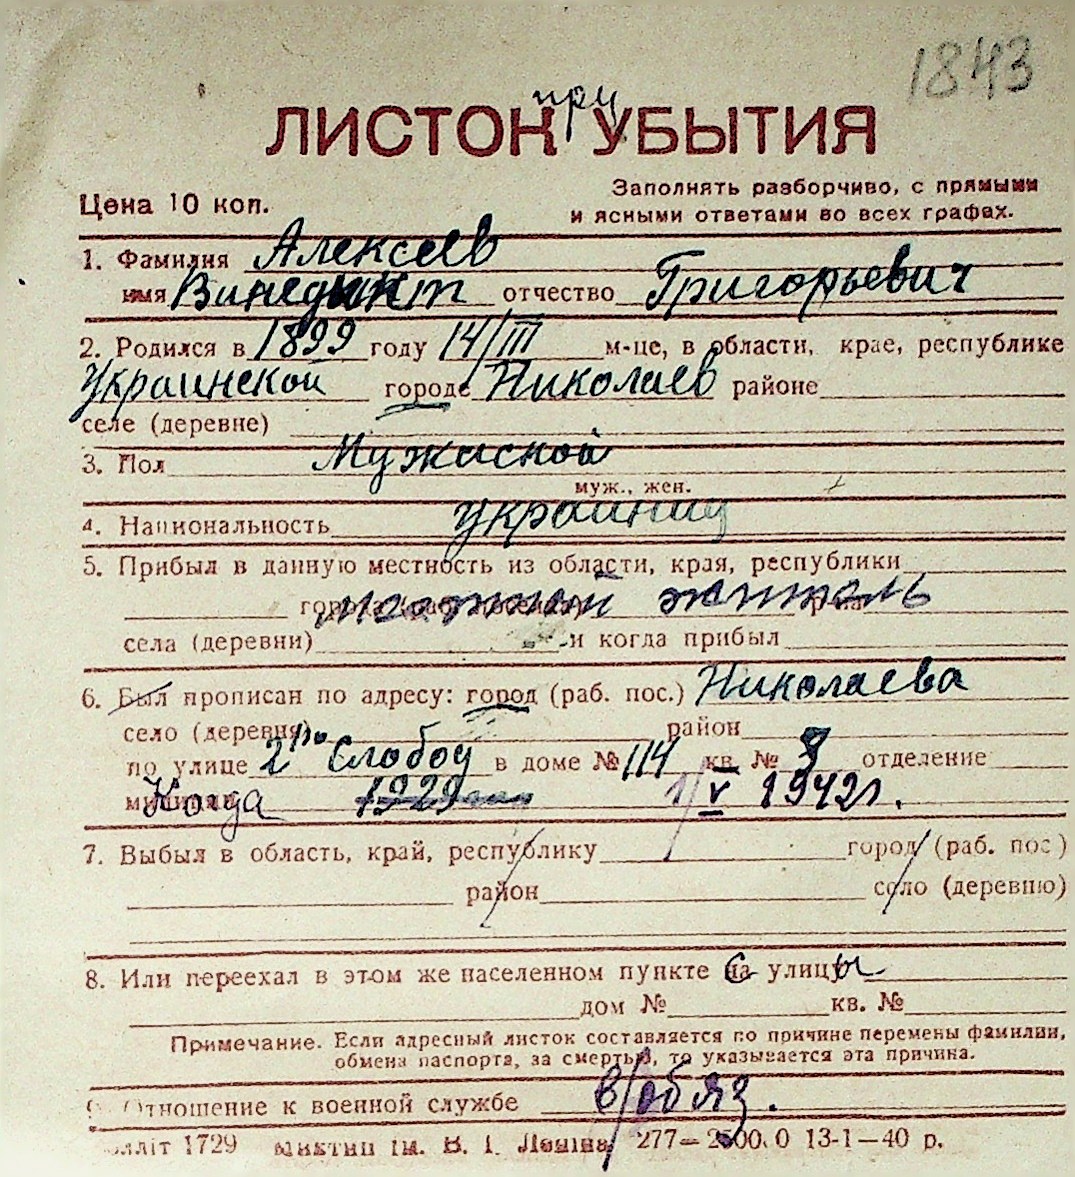 1843
при
ЛИСТОК УБЫТИЯ
Цена 10 коп.
Заполнять разборчиво, с прямыми
и ясными ответами во всех графах.
1. Фамилия Алексеев
имя Винедикт отчество Григорьевич
2. Родился в 1899 году 14/III м-це, в области, крае, республике
Украинской городе Николаев районе
селе (деревне)
3. Пол Мужской
муж., жен.
4. Национальность украинец
5. Прибыл в данную местность из области, края, республики
города местный житель
села (деревни) и когда прибыл
6. Был прописан по адресу: город (раб. пос.) Николаева
село (деревня) район
по улице 2я Слобод в доме № 114 кв. № 8 отделение
милиции Когда 1929 1/V 1942г.
7. Выбыл в область, край, республику город (раб. пос.)
район село (деревню)
8. Или переехал в этом же населенном пункте с улицы
дом № кв. №
Примечание. Если адресный листок составляется по причине перемены фамилии,
обмена паспорта, за смертью, то указывается эта причина.
9. Отношение к военной службе в/обяз.
1729 ім. В. І. Леніна 277— 13-1—40 р.